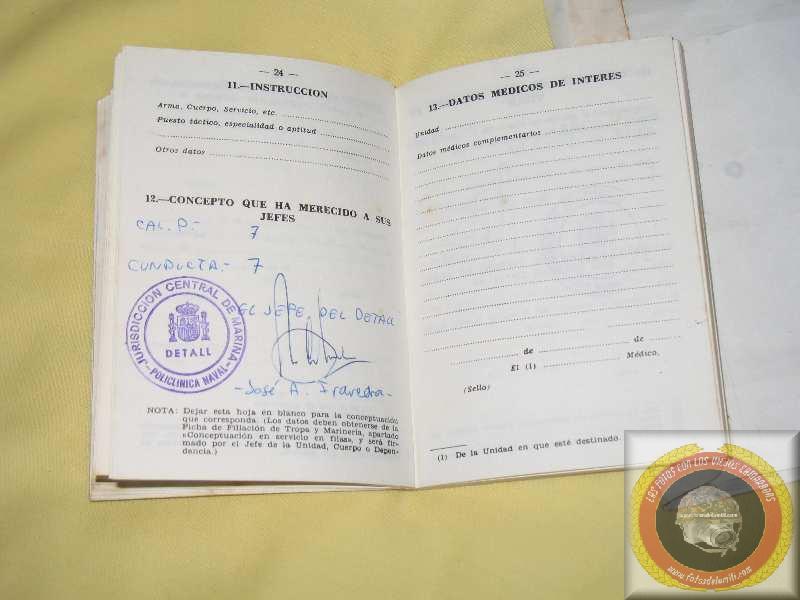 — 24 —
11.—INSTRUCCION
Arma, Cuerpo, Servicio, etc.
Puesto táctico, especialidad o aptitud
Otros datos
12.—CONCEPTO QUE HA MERECIDO A SUS
JEFES
CAL. P.- 7
CONDUCTA.- 7
EL JEFE DEL DETALL
JURISDICCION CENTRAL DE MARINA
DETALL
POLICLINICA NAVAL
-José A.
NOTA: Dejar esta hoja en blanco para la conceptuación
que corresponda (Los datos deben obtenerse de la
Ficha de Filiación de Tropa y Marinería, apartado
«Conceptuación en servicio en filas», y será fir-
mado por el Jefe de la Unidad, Cuerpo o Depen-
dencia.)
— 25 —
13.—DATOS MEDICOS DE INTERES
Unidad
Datos médicos complementarios
de de
El (1) Médico,
(Sello)
(1) De la Unidad en que esté destinado.
LAS FOTOS CON LOS VIEJOS CAMARADAS
www.fotosdelamili.com